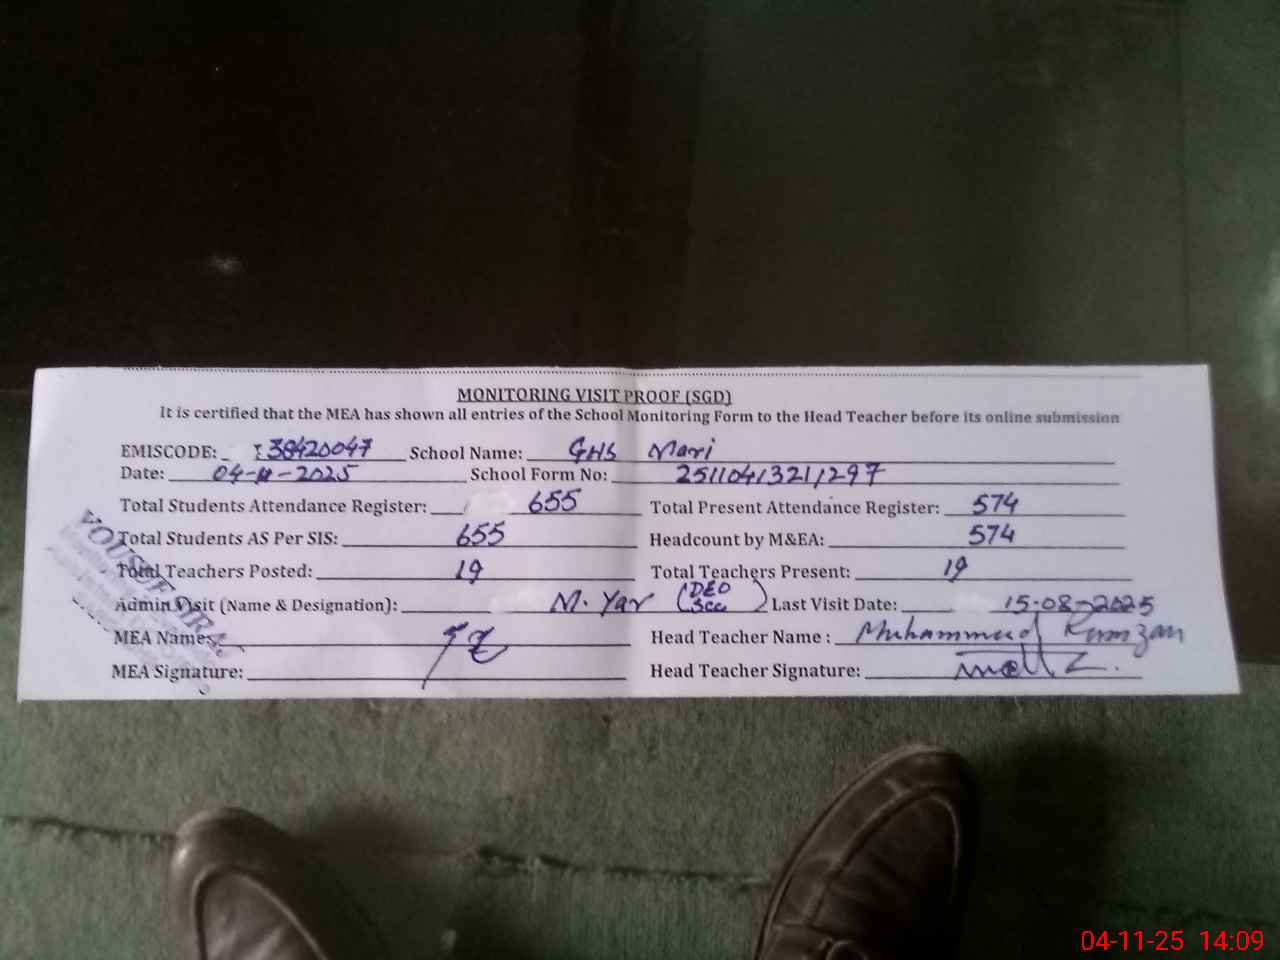 MONITORING VISIT PROOF (SGD)
It is certified that the MEA has shown all entries of the School Monitoring Form to the Head Teacher before its online submission
EMISCODE: 38420047 School Name: GHS Mari
Date: 04-11-2025 School Form No: 25110413211297
Total Students Attendance Register: 655 Total Present Attendance Register: 574
Total Students AS Per SIS: 655 Headcount by M&EA: 574
Total Teachers Posted: 19 Total Teachers Present: 19
Admin Visit (Name & Designation): M. Yar (DEO Last Visit Date: 15-08-2025
MEA Name: Head Teacher Name : Muhammad Ramzan
MEA Signature: Head Teacher Signature:
04-11-25 14:09